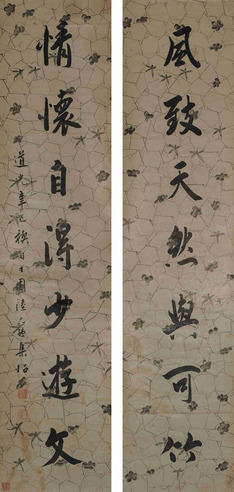 風致天然與可竹
情懷自得少遊文
道光辛巳